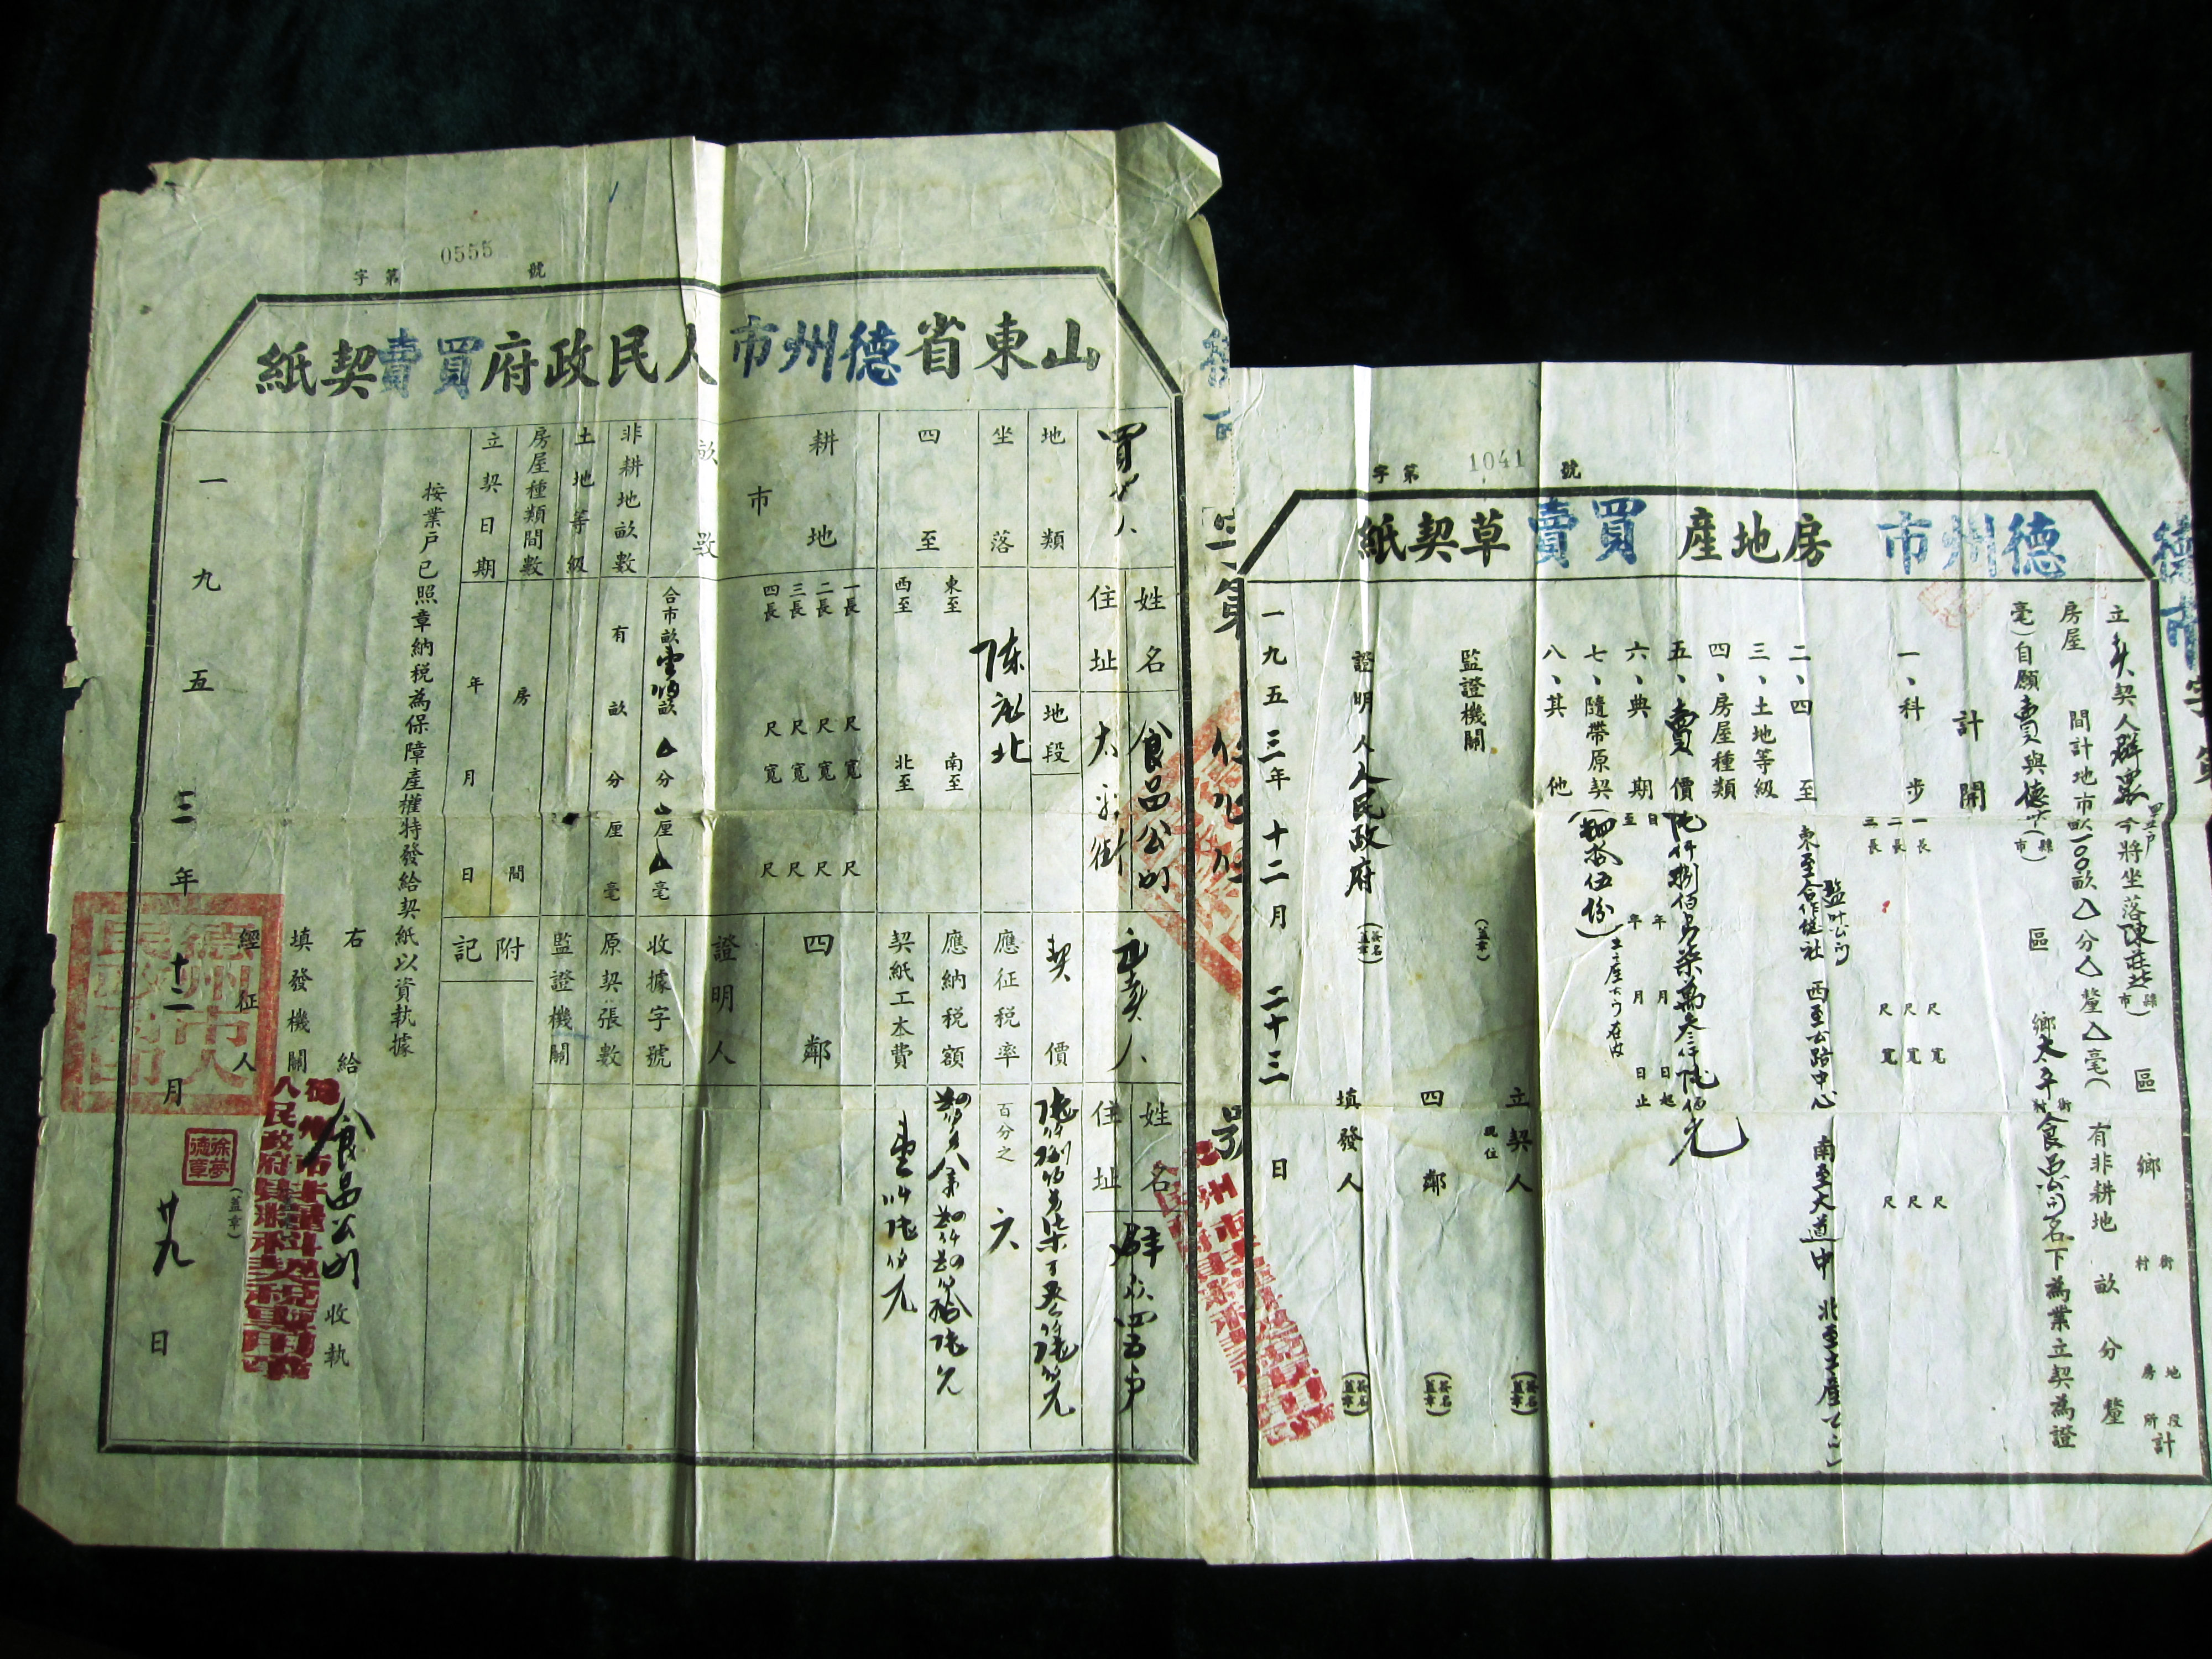 字第 1041 號
德州市房地產買賣草契紙
立賣契人群眾今將坐落陳莊北(縣市) 區 鄉 街村 地段房所計
房屋 間計地市畝一〇〇畝△分△釐△毫(有非耕地 畝 分 釐
毫)自願賣與德州(縣市) 區 鄉太平街村食品公司名下為業立契為證
計開
一、科步 一長 尺寬 尺
二長 尺寬 尺
三長 尺寬 尺
二、四至 東至合作總社 西至公路中心 南至大道中 北至土產公司
三、土地等級
四、房屋種類
五、賣價陸仟捌佰另柒萬叁仟陸佰元
六、典期 自 年 月 日起
至 年 月 日止
七、隨帶原契(肆拾伍份)
八、其他
監證機關 (蓋章)
立契人 (簽名蓋章)
四鄰 (簽名蓋章)
證明人人民政府 (簽名蓋章)
填發人 (簽名蓋章)
一九五三年十二月二十三日
字第 0555 號
山東省德州市人民政府買賣契紙
買 人
姓名 食品公司
住址 太平街
地類 地段
坐落 陳莊北
四至 東至 南至
西至 北至
耕地市畝數
一長 尺寬 尺
二長 尺寬 尺
三長 尺寬 尺
四長 尺寬 尺
合市畝壹佰畝△分△厘△毫
非耕地畝數 有 畝 分 厘 毫
土地等級
房屋種類間數 房 間
立契日期 年 月 日
立賣人
姓名 群眾四五戶
住址
契價 陸仟捌佰另柒萬叁仟陸佰元
應征税率 百分之六
應納税額 肆佰另八萬肆仟肆佰拾陸元
契紙工本費 壹仟陸佰元
四鄰
證明人
收據字號
原契張數
監證機關
附記
按業戶已照章納税為保障產權特發給契紙以資執據
右給食品公司收執
填發機關
德州市人民政府財糧科契税專用章
經征人 (蓋章)
徐夢德章
德州市人民政府印
一九五三年十二月廿九日